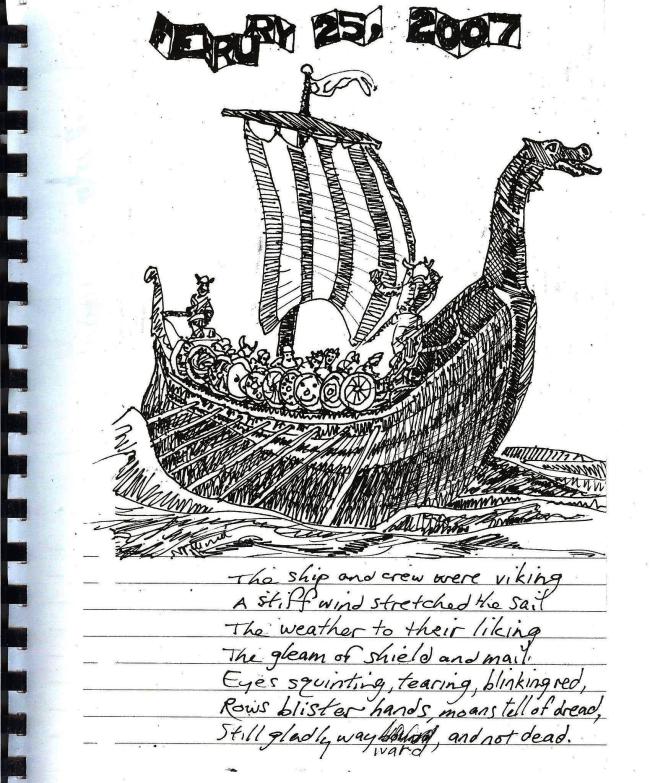 FERURY 25, 2007
The ship and crew were viking
A stiff wind stretched the sail
The weather to their liking
The gleam of shield and mail.
Eyes squinting, tearing, blinking red,
Rows blister hands, moans tell of dread,
Still gladly way ward, and not dead.